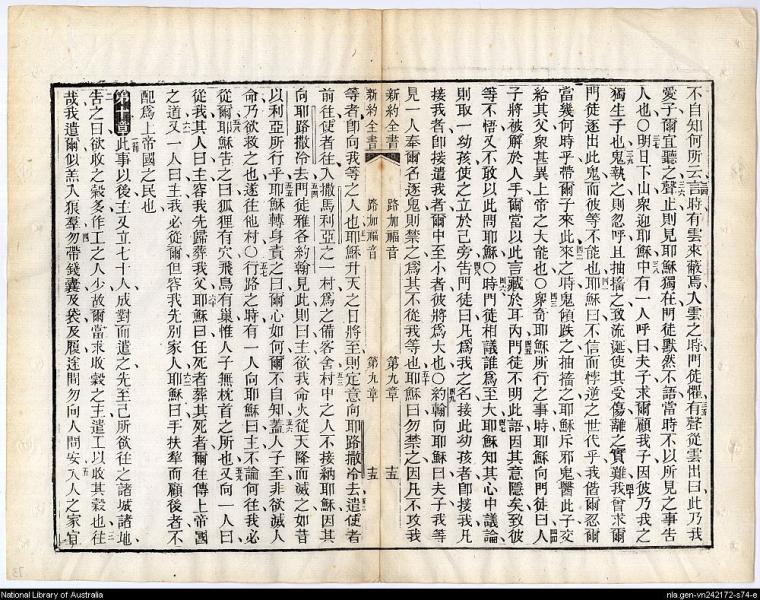 不自知何所云言時有雲來蔽焉人雲之時門徒懼有聲從雲出曰此乃我
愛子爾宜聽之聲止則見耶穌獨在門徒默然不語當時不以所見之事吿
人也○明日下山衆迎耶穌中有一人呼曰夫子求爾顧我子因彼乃我之
獨生子也鬼執之則忽呼且抽搐之致流涎使其受傷離之實難我曾求爾
門徒逐出此鬼而彼等不能也耶穌曰不信而悖逆之世代乎我偕爾忍爾
當幾何時乎帶爾子來此來之時鬼傾跌之抽搐之耶穌斥邪鬼醫此子交
給其父衆甚異上帝之大能也○衆奇耶穌所行之事時耶穌向門徒曰人
子將被解於人手爾當以此言藏於耳內門徒不明此語因其意隱矣致彼
等不悟又不敢以此問耶穌○時門徒相議誰爲至大耶穌知其心中議論
則取一幼孩使之立於己旁吿門徒曰凡爲我之名接此幼孩者卽接我凡
接我者卽接遣我者爾中至小者彼將爲大也○約翰向耶穌曰夫子我等
見一人奉爾名逐鬼則禁之爲其不從我等也耶穌曰勿禁之因凡不攻我
新約全書 路加福音 第九章 十五
新約全書 路加福音 第九章 十五
等者卽向我等之人也耶穌升天之日將至則定意向耶路撒冷去遣使者
前往使者往入撒馬利亞之一村爲之備客舍村中之人不接納耶穌因其
向耶路撒冷去門徒雅各約翰見此則曰主欲我命火從天降而滅之如昔
以利亞所行乎耶穌轉身責之曰爾心如何爾不自知蓋人子至非欲滅人
命乃欲救之也遂往他村○行路之時有一人向耶穌曰主不論何往我必
從爾耶穌吿之曰狐狸有穴飛鳥有巢惟人子無枕首之所也又向一人曰
從我其人曰主容我先歸葬我父耶穌曰任死者葬其死者爾往傳上帝國
之道又一人曰主我必從爾但容我先別家人耶穌曰手扶犂而顧後者不
配爲上帝國之民也
第十章此事以後主又立七十人成對而遣之先至己所欲往之諸城諸地
吿之曰欲收之穀多作工之人少故爾當求收穀之主遣工以收其穀也往
哉我遣爾似羔入狼羣勿帶錢囊及袋及履途間勿向人問安入人之家宜
National Library of Australia
nla.gen-vn242172-s74-e